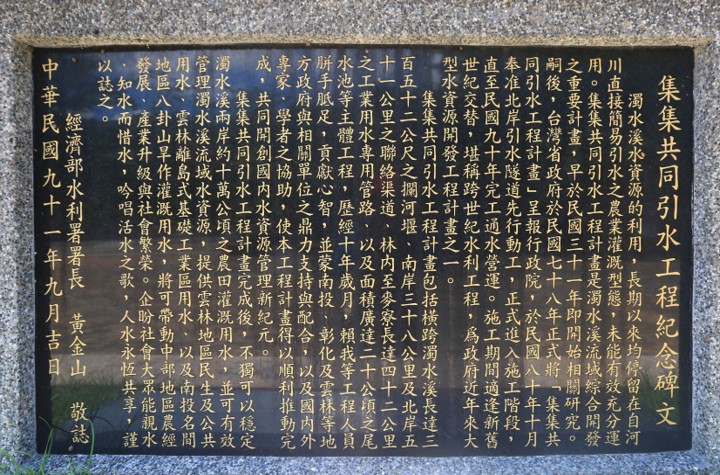 集集共同引水工程紀念碑文
濁水溪水資源的利用，長期以來均停留在自河
川直接簡易引水之農業灌溉型態，未能有效充分運
用。集集共同引水工程計畫是濁水溪流域綜合開發
之重要計畫，早於民國三十一年即開始相關研究。
嗣後，台灣省政府於民國七十八年正式將「集集共
同引水工程計畫」呈報行政院，於民國八十年十月
奉准北岸引水隧道先行動工，正式進入施工階段，
直至民國九十年完工通水營運。施工期間適逢新舊
世紀交替，堪稱跨世紀水利工程，為政府近年來大
型水資源開發工程計畫之一。
集集共同引水工程計畫包括橫跨濁水溪長達三
百五十二公尺之攔河堰、南岸三十八公里及北岸五
十一公里之聯絡渠道、林內至麥寮長達四十二公里
之工業用水專用管路、以及面積廣達二十公頃之尾
水池等主體工程，歷經十年歲月，賴我等工程人員
胼手胝足，貢獻心智，並蒙南投、彰化及雲林等地
方政府與相關單位之鼎力支持與配合，以及國內外
專家、學者之協助，使本工程計畫得以順利推動完
成，共同開創國內水資源管理新紀元。
集集共同引水工程計畫完成後，不獨可以穩定
濁水溪兩岸約十萬公頃之農田灌溉用水，並可有效
管理濁水溪流域水資源，提供雲林地區民生及公共
用水、雲林離島式基礎工業區用水、以及南投名間
地區八卦山旱作灌溉用水，將可帶動中部地區農經
發展、產業升級與社會繁榮。企盼社會大眾能親水
、知水而惜水，吟唱活水之歌，人水永恆共享，謹
以誌之。
經濟部水利署署長 黃金山 敬誌
中華民國九十一年九月吉日